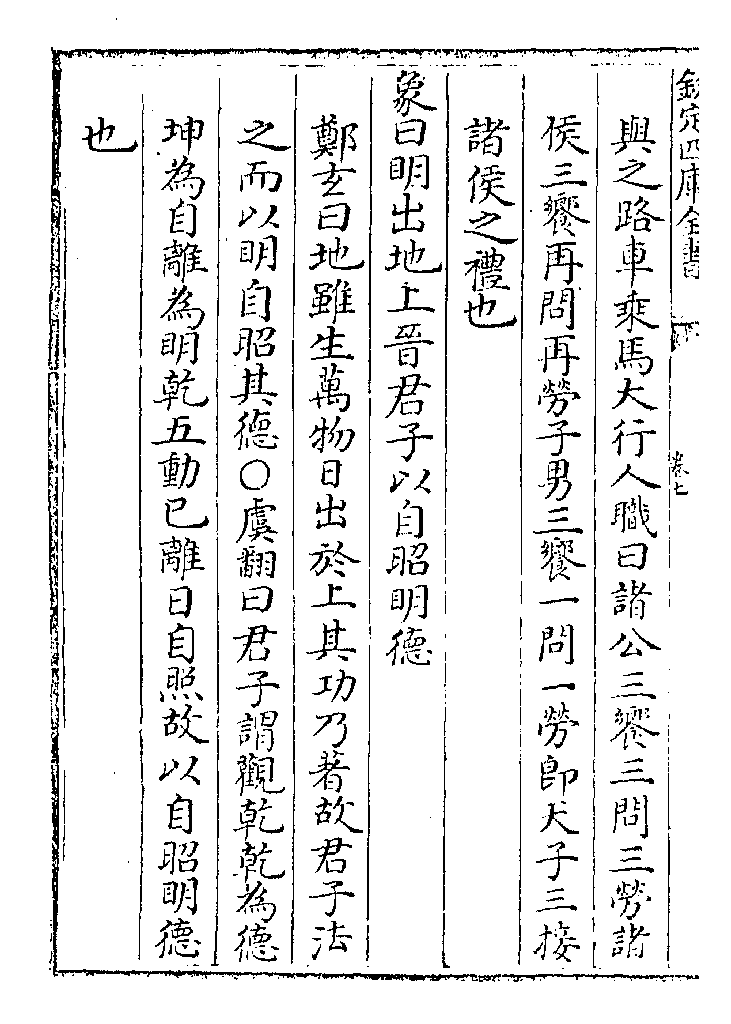 欽定四庫全書
卷七
與之路車乘馬大行人職曰諸公三饗三問三勞諸
侯三饗再問再勞子男三饗一問一勞即天子三接
諸侯之禮也
象曰明出地上晉君子以自昭明德
鄭玄曰地雖生萬物日出於上其功乃著故君子法
之而以明自昭其德○虞翻曰君子謂觀乾乾為德
坤為自離為明乾五動已離日自照故以自昭明德
也